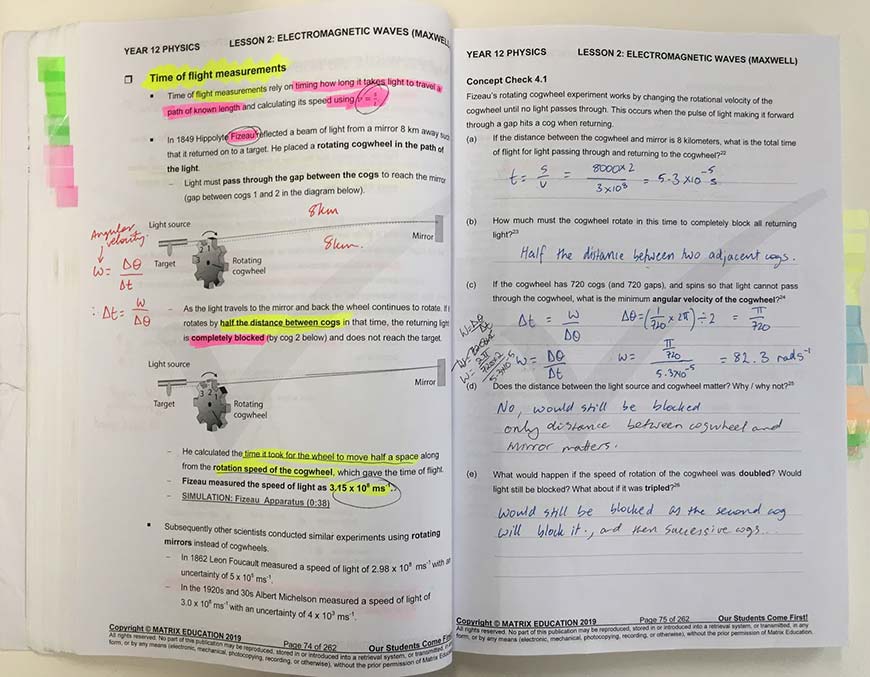 YEAR 12 PHYSICS LESSON 2: ELECTROMAGNETIC WAVES (MAXWELL
Time of flight measurements
Time of flight measurements rely on timing how long it takes light to travel a
path of known length and calculating its speed using v = s/t.
In 1849 Hippolyte Fizeau reflected a beam of light from a mirror 8 km away such
that it returned on to a target. He placed a rotating cogwheel in the path of
the light.
– Light must pass through the gap between the cogs to reach the mirror
(gap between cogs 1 and 2 in the diagram below).
8km
Light source
8km.
Mirror
Angular
velocity
2 1
3
Target
Rotating
cogwheel
ω = Δθ/Δt
∴ Δt = ω/Δθ
– As the light travels to the mirror and back the wheel continues to rotate. If
rotates by half the distance between cogs in that time, the returning light
is completely blocked (by cog 2 below) and does not reach the target.
Light source
Mirror
3 2 1
Target
Rotating
cogwheel
– He calculated the time it took for the wheel to move half a space along
from the rotation speed of the cogwheel, which gave the time of flight.
– Fizeau measured the speed of light as 3.15 x 10⁸ ms⁻¹.
– SIMULATION: Fizeau Apparatus (0:38)
Subsequently other scientists conducted similar experiments using rotating
mirrors instead of cogwheels.
– In 1862 Leon Foucault measured a speed of light of 2.98 x 10⁸ ms⁻¹ with an
uncertainty of 5 x 10⁵ ms⁻¹.
– In the 1920s and 30s Albert Michelson measured a speed of light of
3.0 x 10⁸ ms⁻¹ with an uncertainty of 4 x 10³ ms⁻¹.
Copyright © MATRIX EDUCATION 2019 Page 74 of 262 Our Students Come First
All rights reserved. No part of this publication may be reproduced, stored in or introduced into a retrieval system, or transmitted, in any
form, or by any means (electronic, mechanical, photocopying, recording, or otherwise), without the prior permission of Matrix Education.
YEAR 12 PHYSICS LESSON 2: ELECTROMAGNETIC WAVES (MAXWELL)
Concept Check 4.1
Fizeau's rotating cogwheel experiment works by changing the rotational velocity of the
cogwheel until no light passes through. This occurs when the pulse of light making it forward
through a gap hits a cog when returning.
(a) If the distance between the cogwheel and mirror is 8 kilometers, what is the total time
of flight for light passing through and returning to the cogwheel?²²
t = s/v = 8000×2/3×10⁸ = 5.3×10⁻⁵ s
(b) How much must the cogwheel rotate in this time to completely block all returning
light?²³
Half the distance between two adjacent cogs.
(c) If the cogwheel has 720 cogs (and 720 gaps), and spins so that light cannot pass
through the cogwheel, what is the minimum angular velocity of the cogwheel?²⁴
Δt = ω/Δθ Δθ = (1/720 × 2π) ÷ 2 = π/720
ω = Δθ/Δt ω = π/720 / 5.3×10⁻⁵ = 82.3 rads⁻¹
(d) Does the distance between the light source and cogwheel matter? Why / why not?²⁵
No, would still be blocked
only distance between cogwheel and
mirror matters.
(e) What would happen if the speed of rotation of the cogwheel was doubled? Would
light still be blocked? What about if it was tripled?²⁶
Would still be blocked as the second cog
will block it., and then successive cogs...
Copyright © MATRIX EDUCATION 2019 Page 75 of 262 Our Students Come First!
All rights reserved. No part of this publication may be reproduced, stored in or introduced into a retrieval system, or transmitted, in any
form, or by any means (electronic, mechanical, photocopying, recording, or otherwise), without the prior permission of Matrix Education.